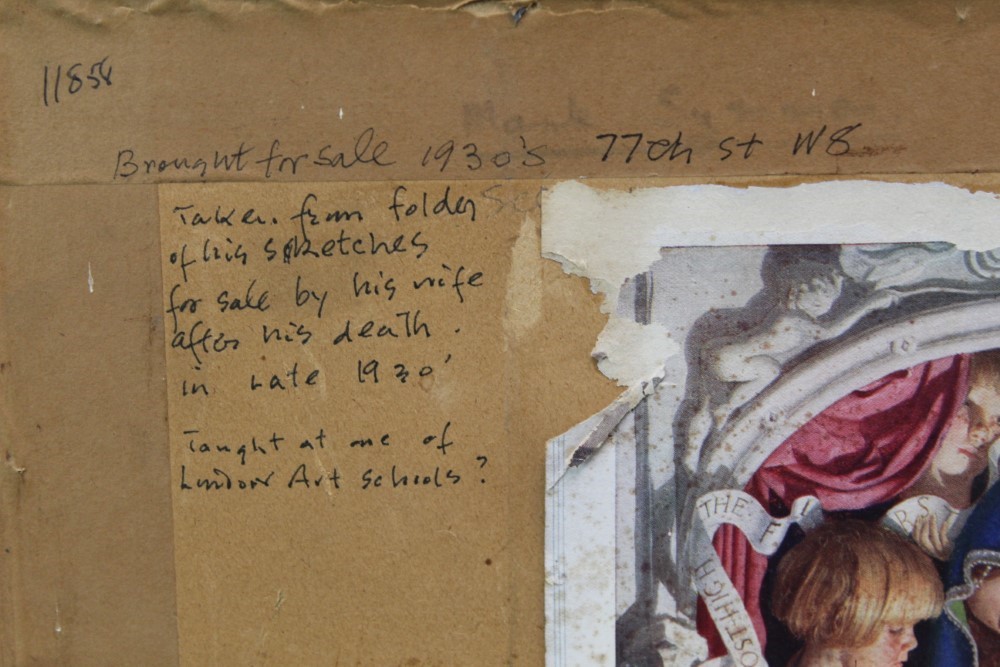 11858
Brought for sale 1930's 77th st W8
Taken from folder
of his sketches
for sale by his wife
after his death.
in late 1930'
Taught at one of
London Art schools?
THE FI
RST
HIGH
OST